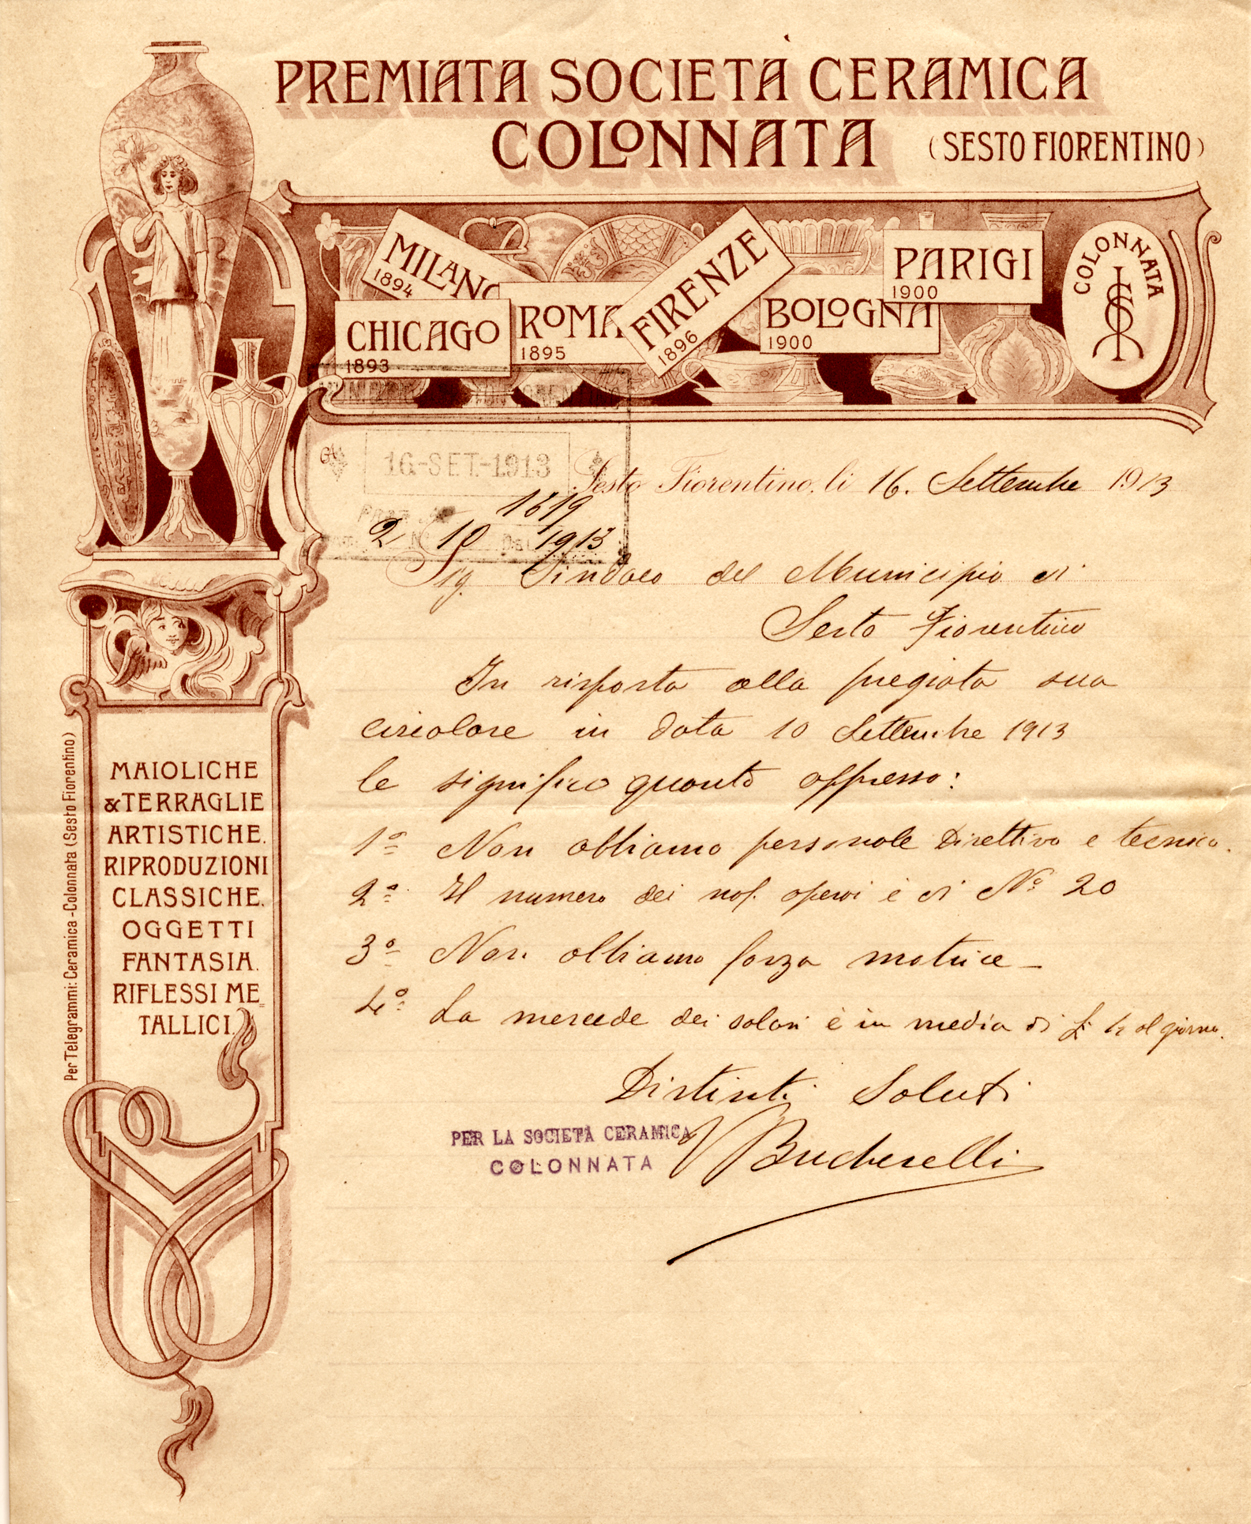 PREMIATA SOCIETÀ CERAMICA
COLONNATA (SESTO FIORENTINO)
MILANO
1894
CHICAGO
1893
ROMA
1895
FIRENZE
1896
BOLOGNA
1900
PARIGI
1900
COLONNATA
16-SET.-1913
Sesto Fiorentino, li 16. Settembre 1913
1619
2 10 1913
Sig. Sindaco del Municipio di
Sesto Fiorentino
In risposta alla pregiata sua
circolare in data 10 Settembre 1913
le significo quanto appresso:
1º Non abbiamo personale Direttivo e tecnico.
2º Il numero dei nos. operai è di Nº 20
3º Non abbiamo forza motrice
4º La mercede dei salari è in media di al giorno.
Distinti Saluti
PER LA SOCIETÀ CERAMICA
COLONNATA
MAIOLICHE
& TERRAGLIE
ARTISTICHE.
RIPRODUZIONI
CLASSICHE.
OGGETTI
FANTASIA.
RIFLESSI ME=
TALLICI.
Per Telegrammi: Ceramica-Colonnata (Sesto Fiorentino)